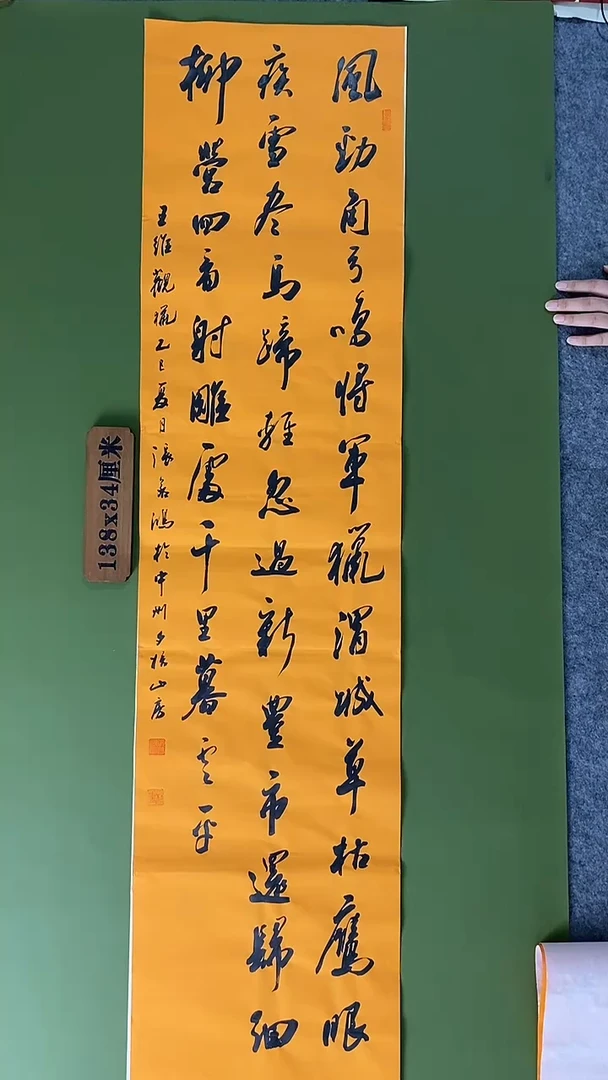 風勁角弓鳴將軍獵渭城草枯鷹眼
疾雪尽馬蹄輕忽過新豐市還歸細
柳營回看射雕處千里暮雲平
王維觀獵乙巳夏日張鴻於中州夕山房
138x34厘米